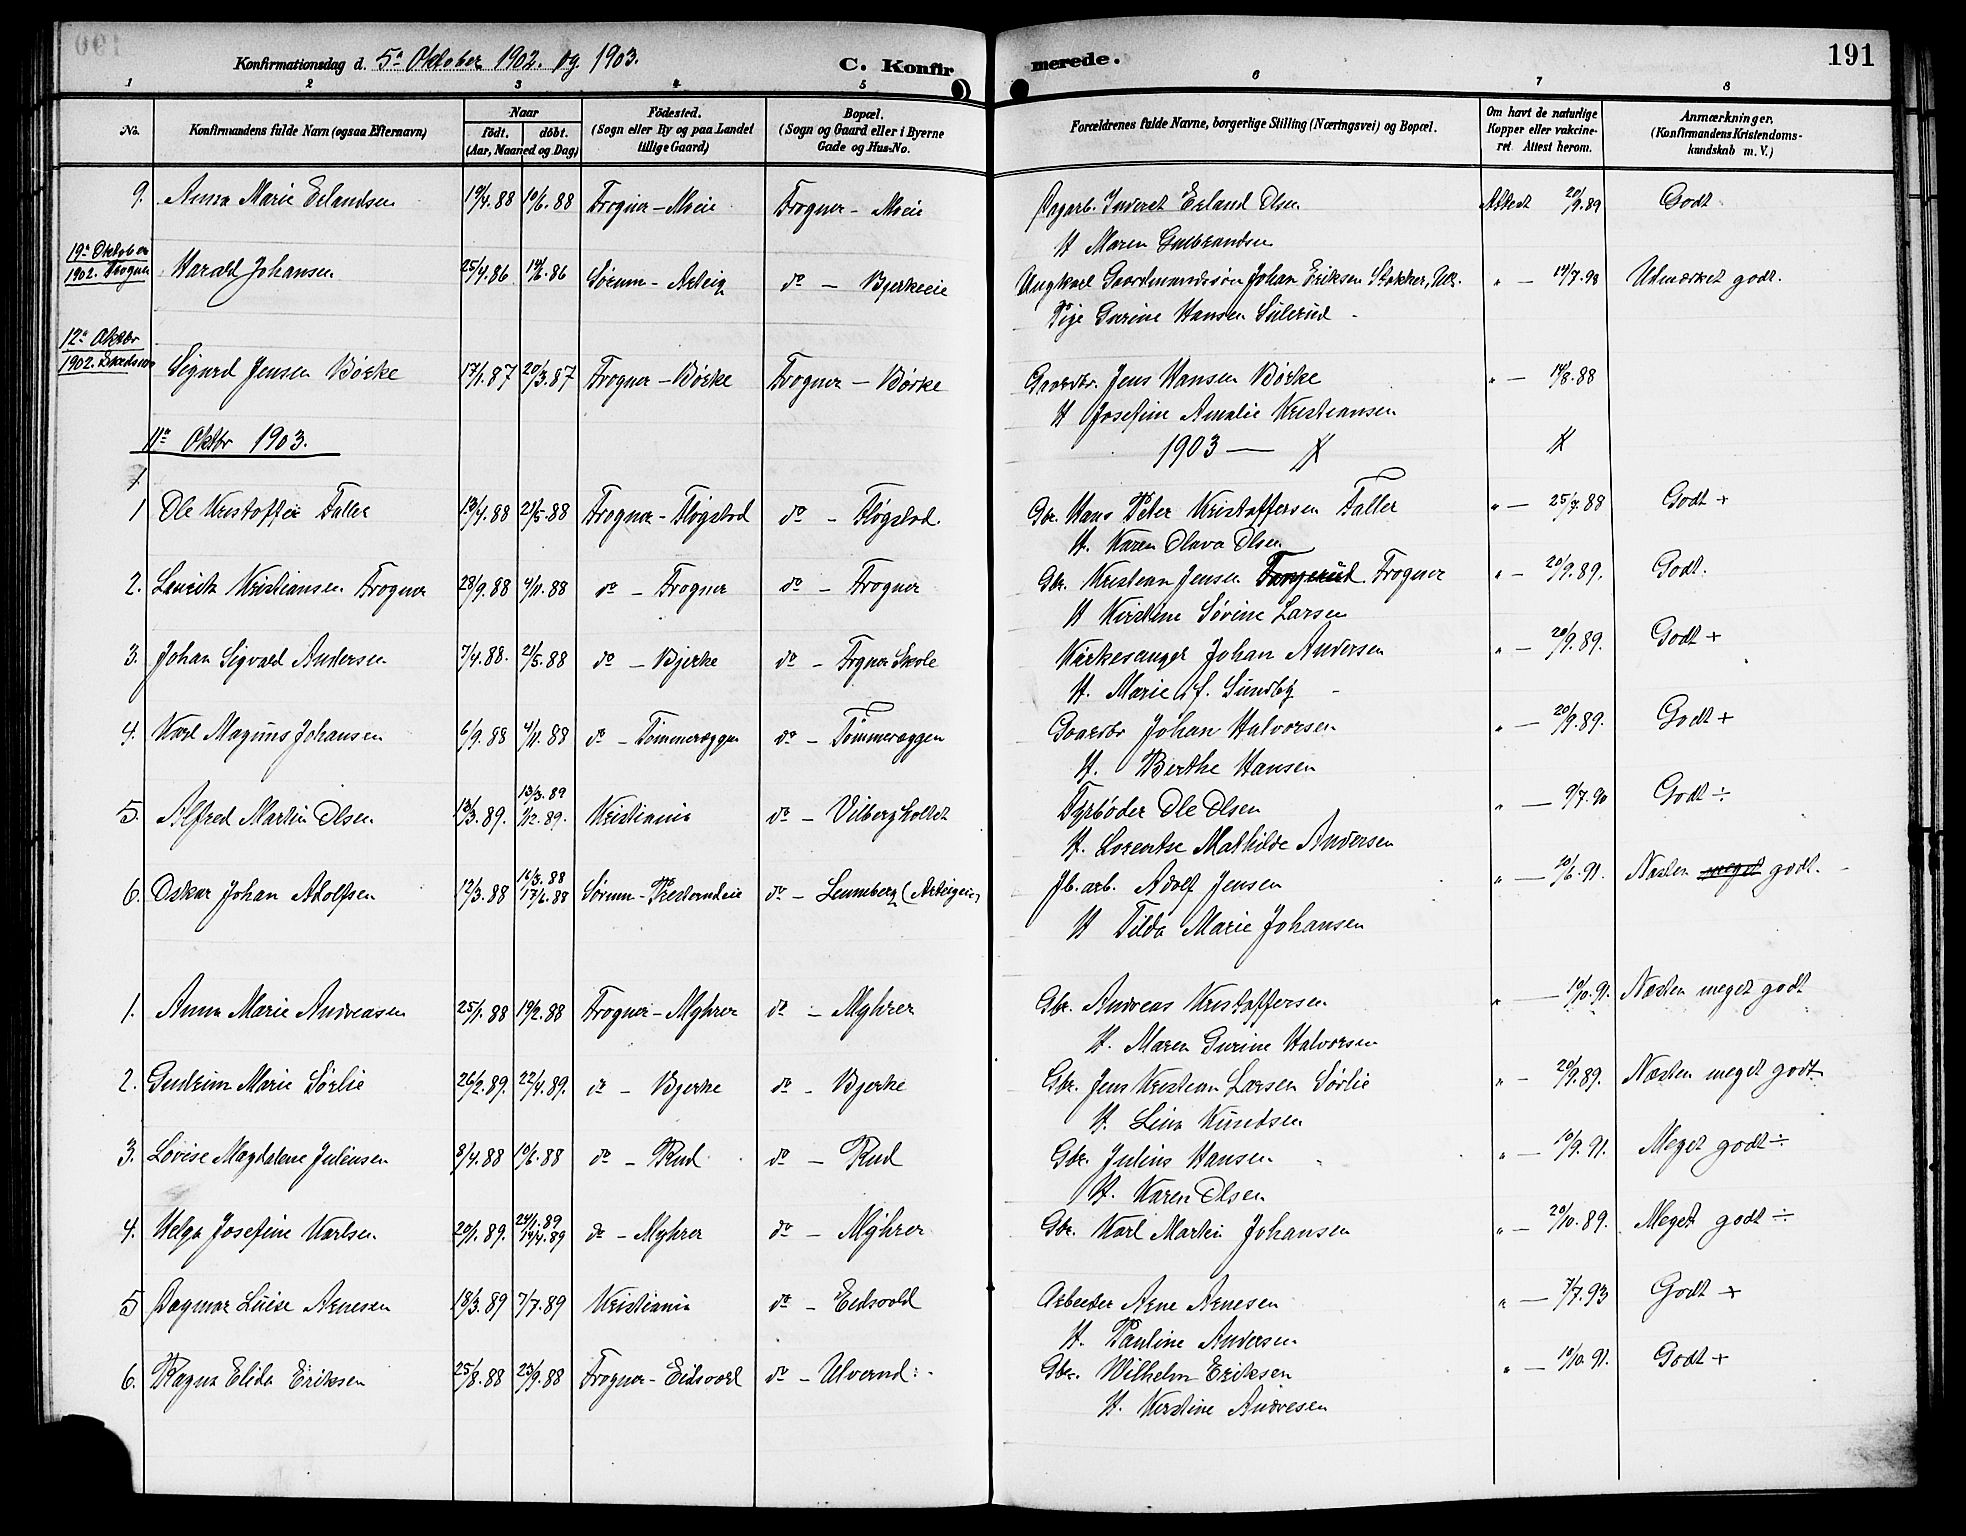 191
Konfirmationsdag d. 5te Oktober 1902. og 1903.
C. Konfirmerede.
1 2 3 4 5 6 7 8
No.
Konfirmandens fulde Navn (ogsaa Efternavn)
Naar
födt. döbt.
(Aar, Maaned og Dag)
Födested.
(Sogn eller By og paa Landet tillige Gaard)
Bopæl.
(Sogn og Gaard eller i Byerne Gade og Hus-No.
Forældrenes fulde Navne, borgerlige Stilling (Næringsvei) og Bopæl.
Om havt de naturlige Kopper eller vakcineret Attest herom.
Anmærkninger,
(Konfirmandens Kristendomskundskab m. V.)
9. Anna Marie Erlandsen 19/4.88 10/6.88 Frogner - Moeie Frogner - Moeie Dagarb. Inderst Erland Olsen Attest 20/9.89 Godt
H Maren Gulbrandsen
19de Oktober
1902. Frogner
Harald Johansen 25/4.86 14/6.86 Sørum - Asteig do - Bjerkeeie Ungkarl Gaardmandssøn Johan Eriksen Stokker, Ull. " - 14/7.98 Udmærket godt.
Pige Gurine Hansen Sulerud -
12te Oktbr
1902.
Sigurd Jensen Børke 17/1.87 20/3.87 Frogner - Børke Frogner - Børke Gaardbr. Jens Hansen Børke " - 14/8.88
H Josefine Amalie Kristiansen
11te Oktbr 1903.
1903 —
1 Ole Kristoffer Faller 13/4.88 21/5.88 Frogner - Fløgstad do - Fløgstad. Gbr. Hans Peter Kristoffersen Faller " - 25/7.88 Godt +
H. Karen Olava Olsen
2. Lauritz Kristiansen Frogner 28/9.88 4/11.88 do - Frogner do - Frogner Gbr. Kristian Jensen Frogner " - 20/9.89. Godt.
H Kirstine Sørine Larsen
3. Johan Sigvald Andersen 7/4.88. 21/5.88 do - Bjerke do - Frogner Skole Kirkesanger Johan Andersen " - 20/9.89. Godt +
H. Marie f. Sundby -
4. Karl Magnus Johansen 6/9.88 4/11.88 do - Tømmeræggen do - Tømmeræggen Gaardbr Johan Halvorsen " - 20/9.89. Godt +
H. Berthe Hansen
5. Alfred Martin Olsen 13/3.89. 13/3.89 1/12.89. Kristiania do - Vilbergholtet Fyrbøder Ole Olsen " - 9/7.90 Godt ÷
H. Lorentse Mathilde Andersen
6. Oskar Johan Adolfsen 12/3.88 16/3.88 17/6.88 Sørum - Presterudeie do - Lunnberg (Asteigeie) Jb.arb. Adolf Jensen " - 10/6.91. Næsten meget godt. -
H Tilda Marie Johansen
1. Anna Marie Andreasen 25/1.88 19/2.88 Frogner - Myhrer do - Myhrer Gbr. Andreas Kristoffersen " - 10/10.91. Næsten meget godt
H. Maren Gurine Halvorsen
2. Gudrun Marie Sørlie 26/2.89. 22/4.89. do - Bjerke do - Bjerke Gbr. Jens Kristian Larsen Sørlie " - 20/9.89. Næsten meget godt
H. Lina Knudsen
3. Lovise Magdalene Juliussen 8/4.88 10/6.88 do - Rud do - Rud Gbr. Julius Hansen " - 10/9.91. Meget godt ÷
H. Karen Olsen
4. Helga Josefine Karlsen 20/1.89. 24/1.89 14/4.89 do - Myhrer do - Myhrer Gbr. Karl Martin Johansen " - 20/10.89. Meget godt ÷
5 Dagmar Luise Arnesen 18/3.89 7/7.89 Kristiania do - Eidsvold Arbeider Arne Arnesen " - 7/7.93 Godt +
H. Pauline Andersen
6. Ragna Elida Eriksen 25/8.88 23/9.88 Frogner - Eidsvold do - Ulverud: - Gbr. Wilhelm Eriksen " - 10/10.91. Godt +
H. Kirstine Andresen